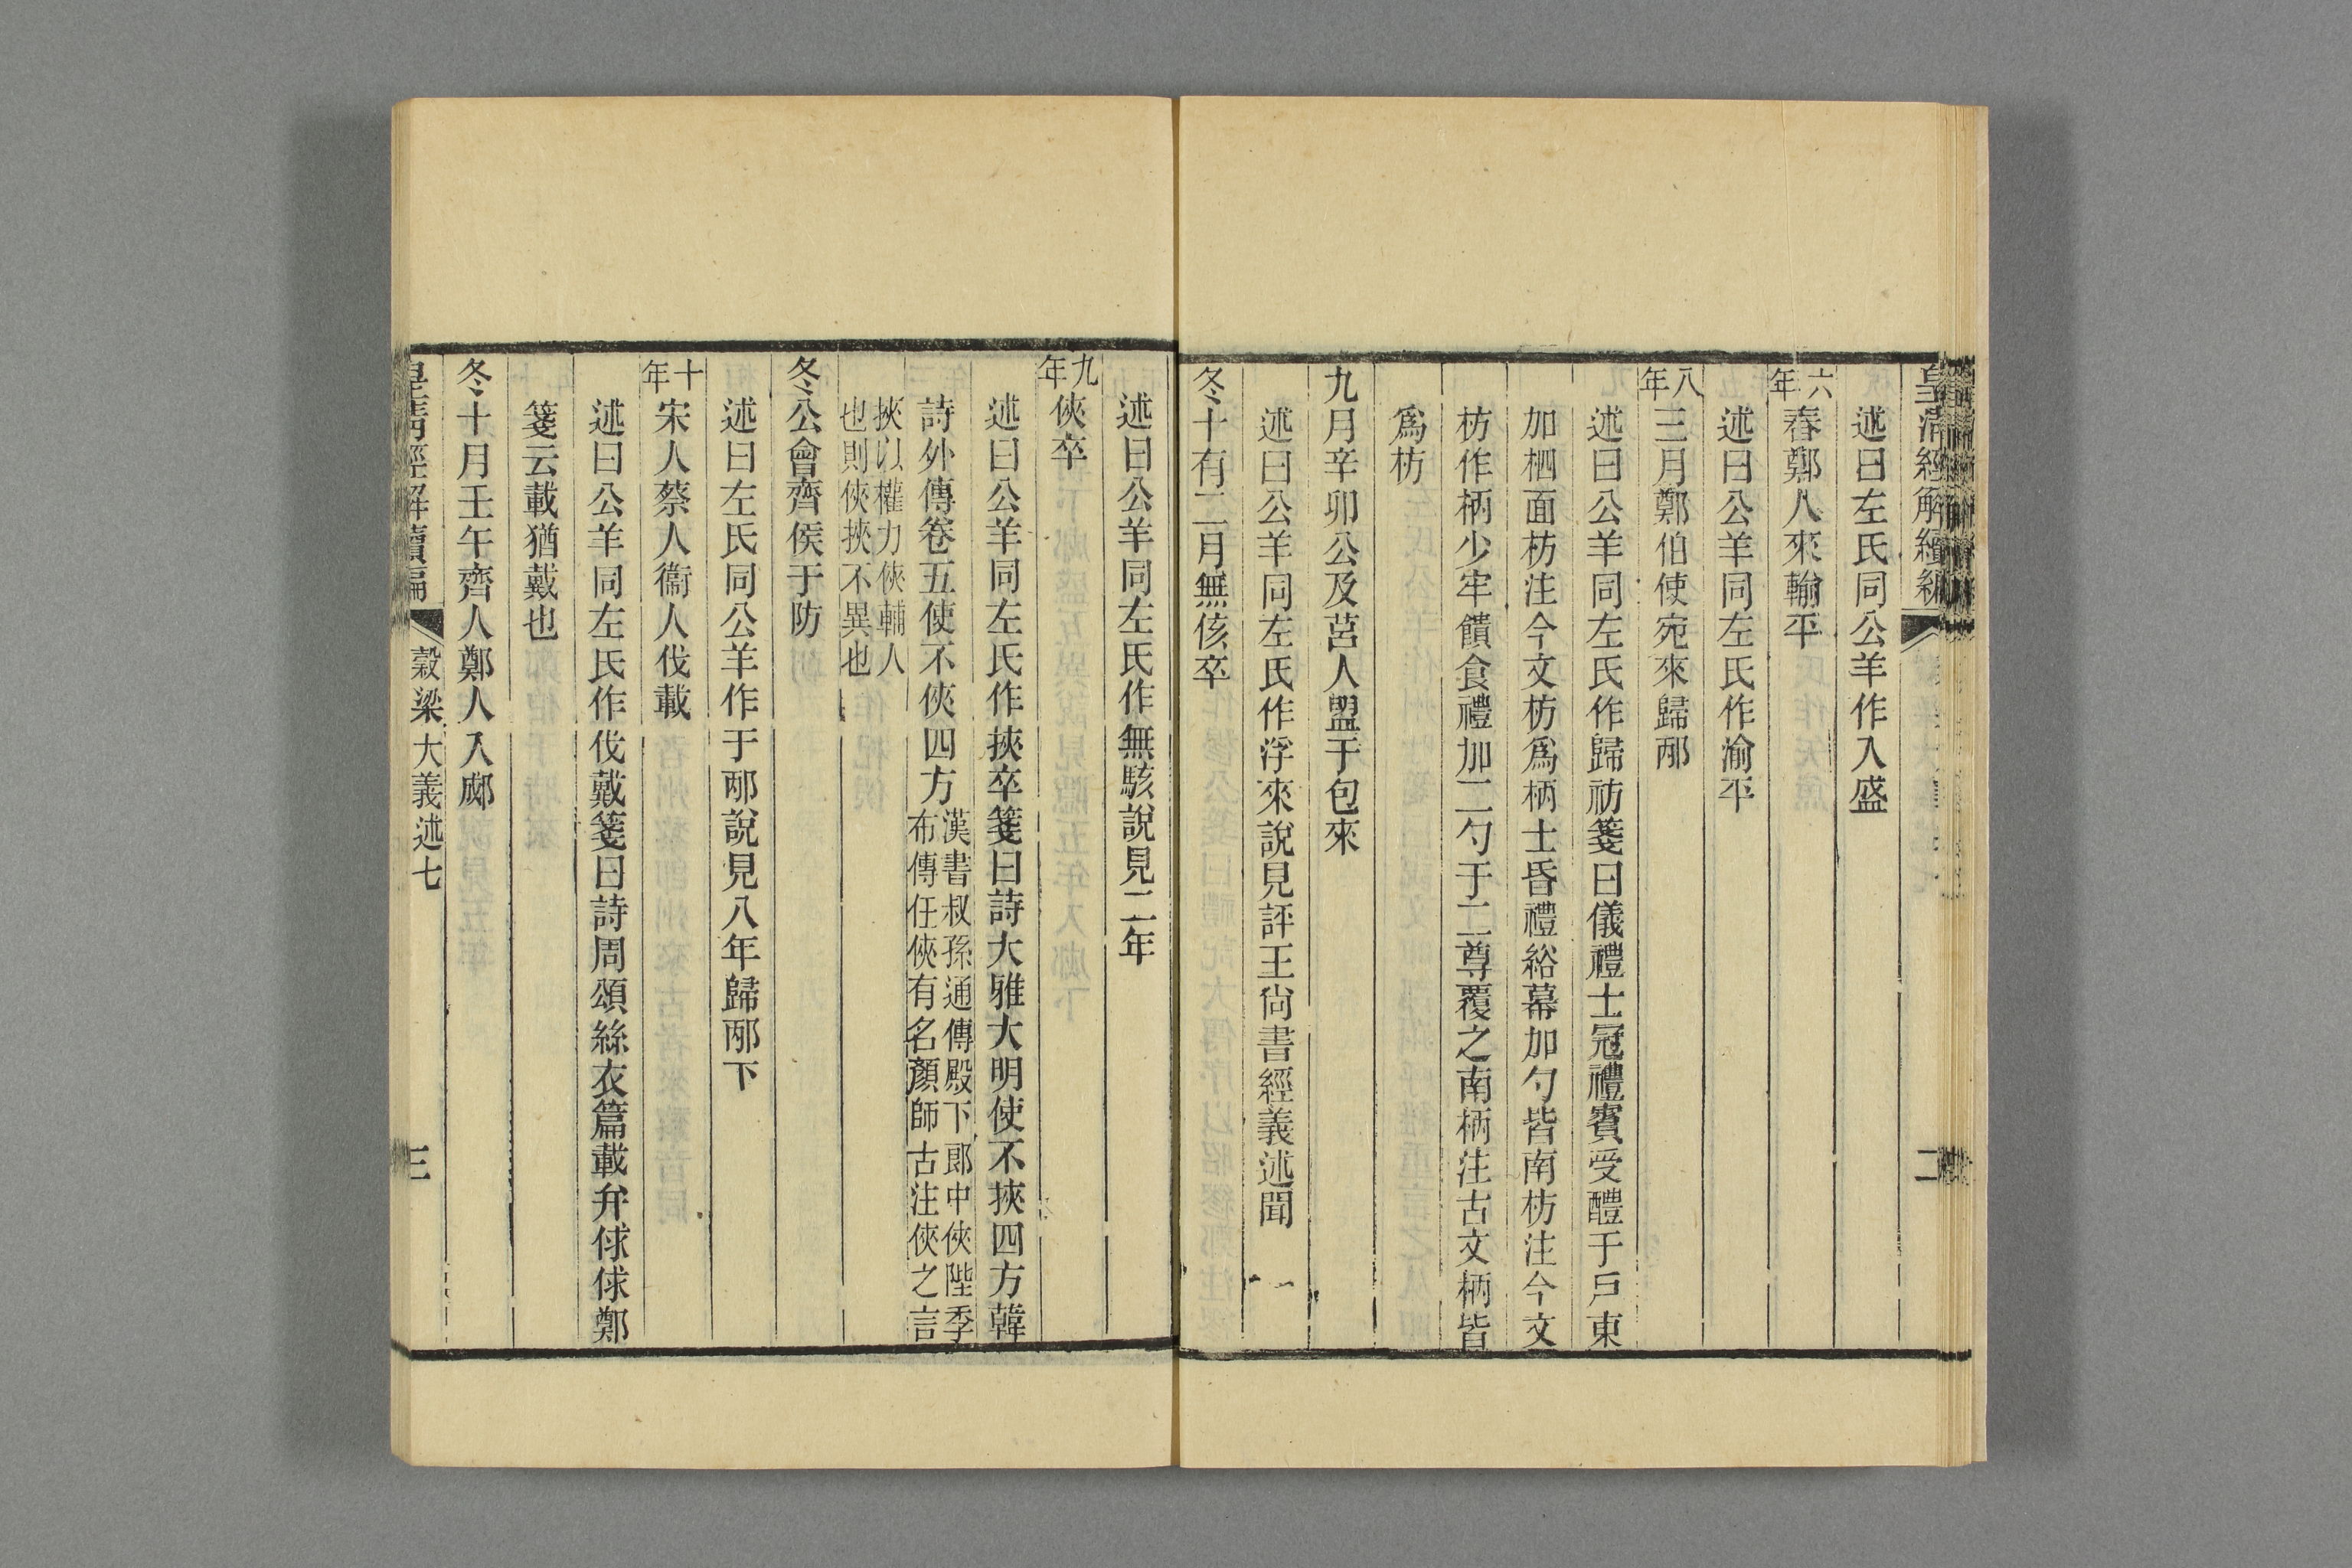 皇清經解續編
二
述曰左氏同公羊作入盛
六年春鄭人來輸平
述曰公羊同左氏作渝平
八年三月鄭伯使宛來歸邴
述曰公羊同左氏作歸祊箋曰儀禮士冠禮賓受醴于戶東
加柶面枋注今文枋爲柄士昏禮綌幕加勺皆南枋注今文
枋作柄少牢饋食禮加二勺于二尊覆之南柄注古文柄皆
爲枋
九月辛卯公及莒人盟于包來
述曰公羊同左氏作浮來說見評王尙書經義述聞
冬十有二月無侅卒
述曰公羊同左氏作無駭說見二年
九年俠卒
述曰公羊同左氏作挾卒箋曰詩大雅大明使不挾四方韓
詩外傳卷五使不俠四方漢書叔孫通傳殿下郎中俠陛季
布傳任俠有名顏師古注俠之言
挾以權力俠輔人
也則俠挾不異也
冬公會齊侯于防
述曰左氏同公羊作于邴說見八年歸邴下
十年宋人蔡人衞人伐載
述曰公羊同左氏作伐戴箋曰詩周頌絲衣篇載弁俅俅鄭
箋云載猶戴也
冬十月壬午齊人鄭人入郕
皇清經解續編
穀梁大義述七
三